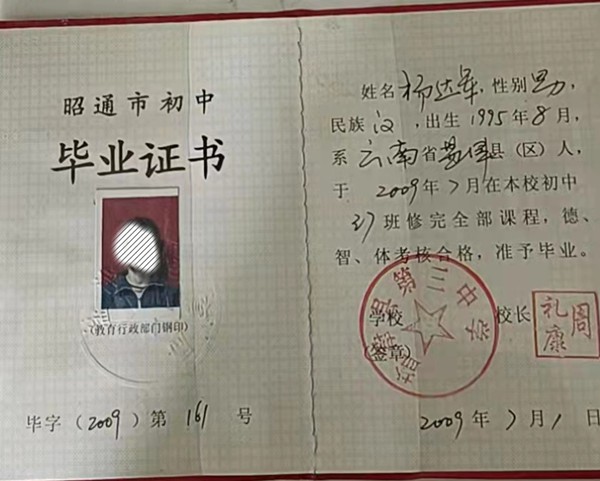 昭通市初中
毕业证书
(教育行政部门钢印)
毕字(2009)第 161 号
姓名 杨达军,性别 男,
民族 汉,出生 1995年8月,
系 云南省 县(区)人,
于 2009年7月在本校初中
37班修完全部课程,德、
智、体考核合格,准予毕业。
学校 校长
(签章)
县第三中学
周礼康
2009年7月1日